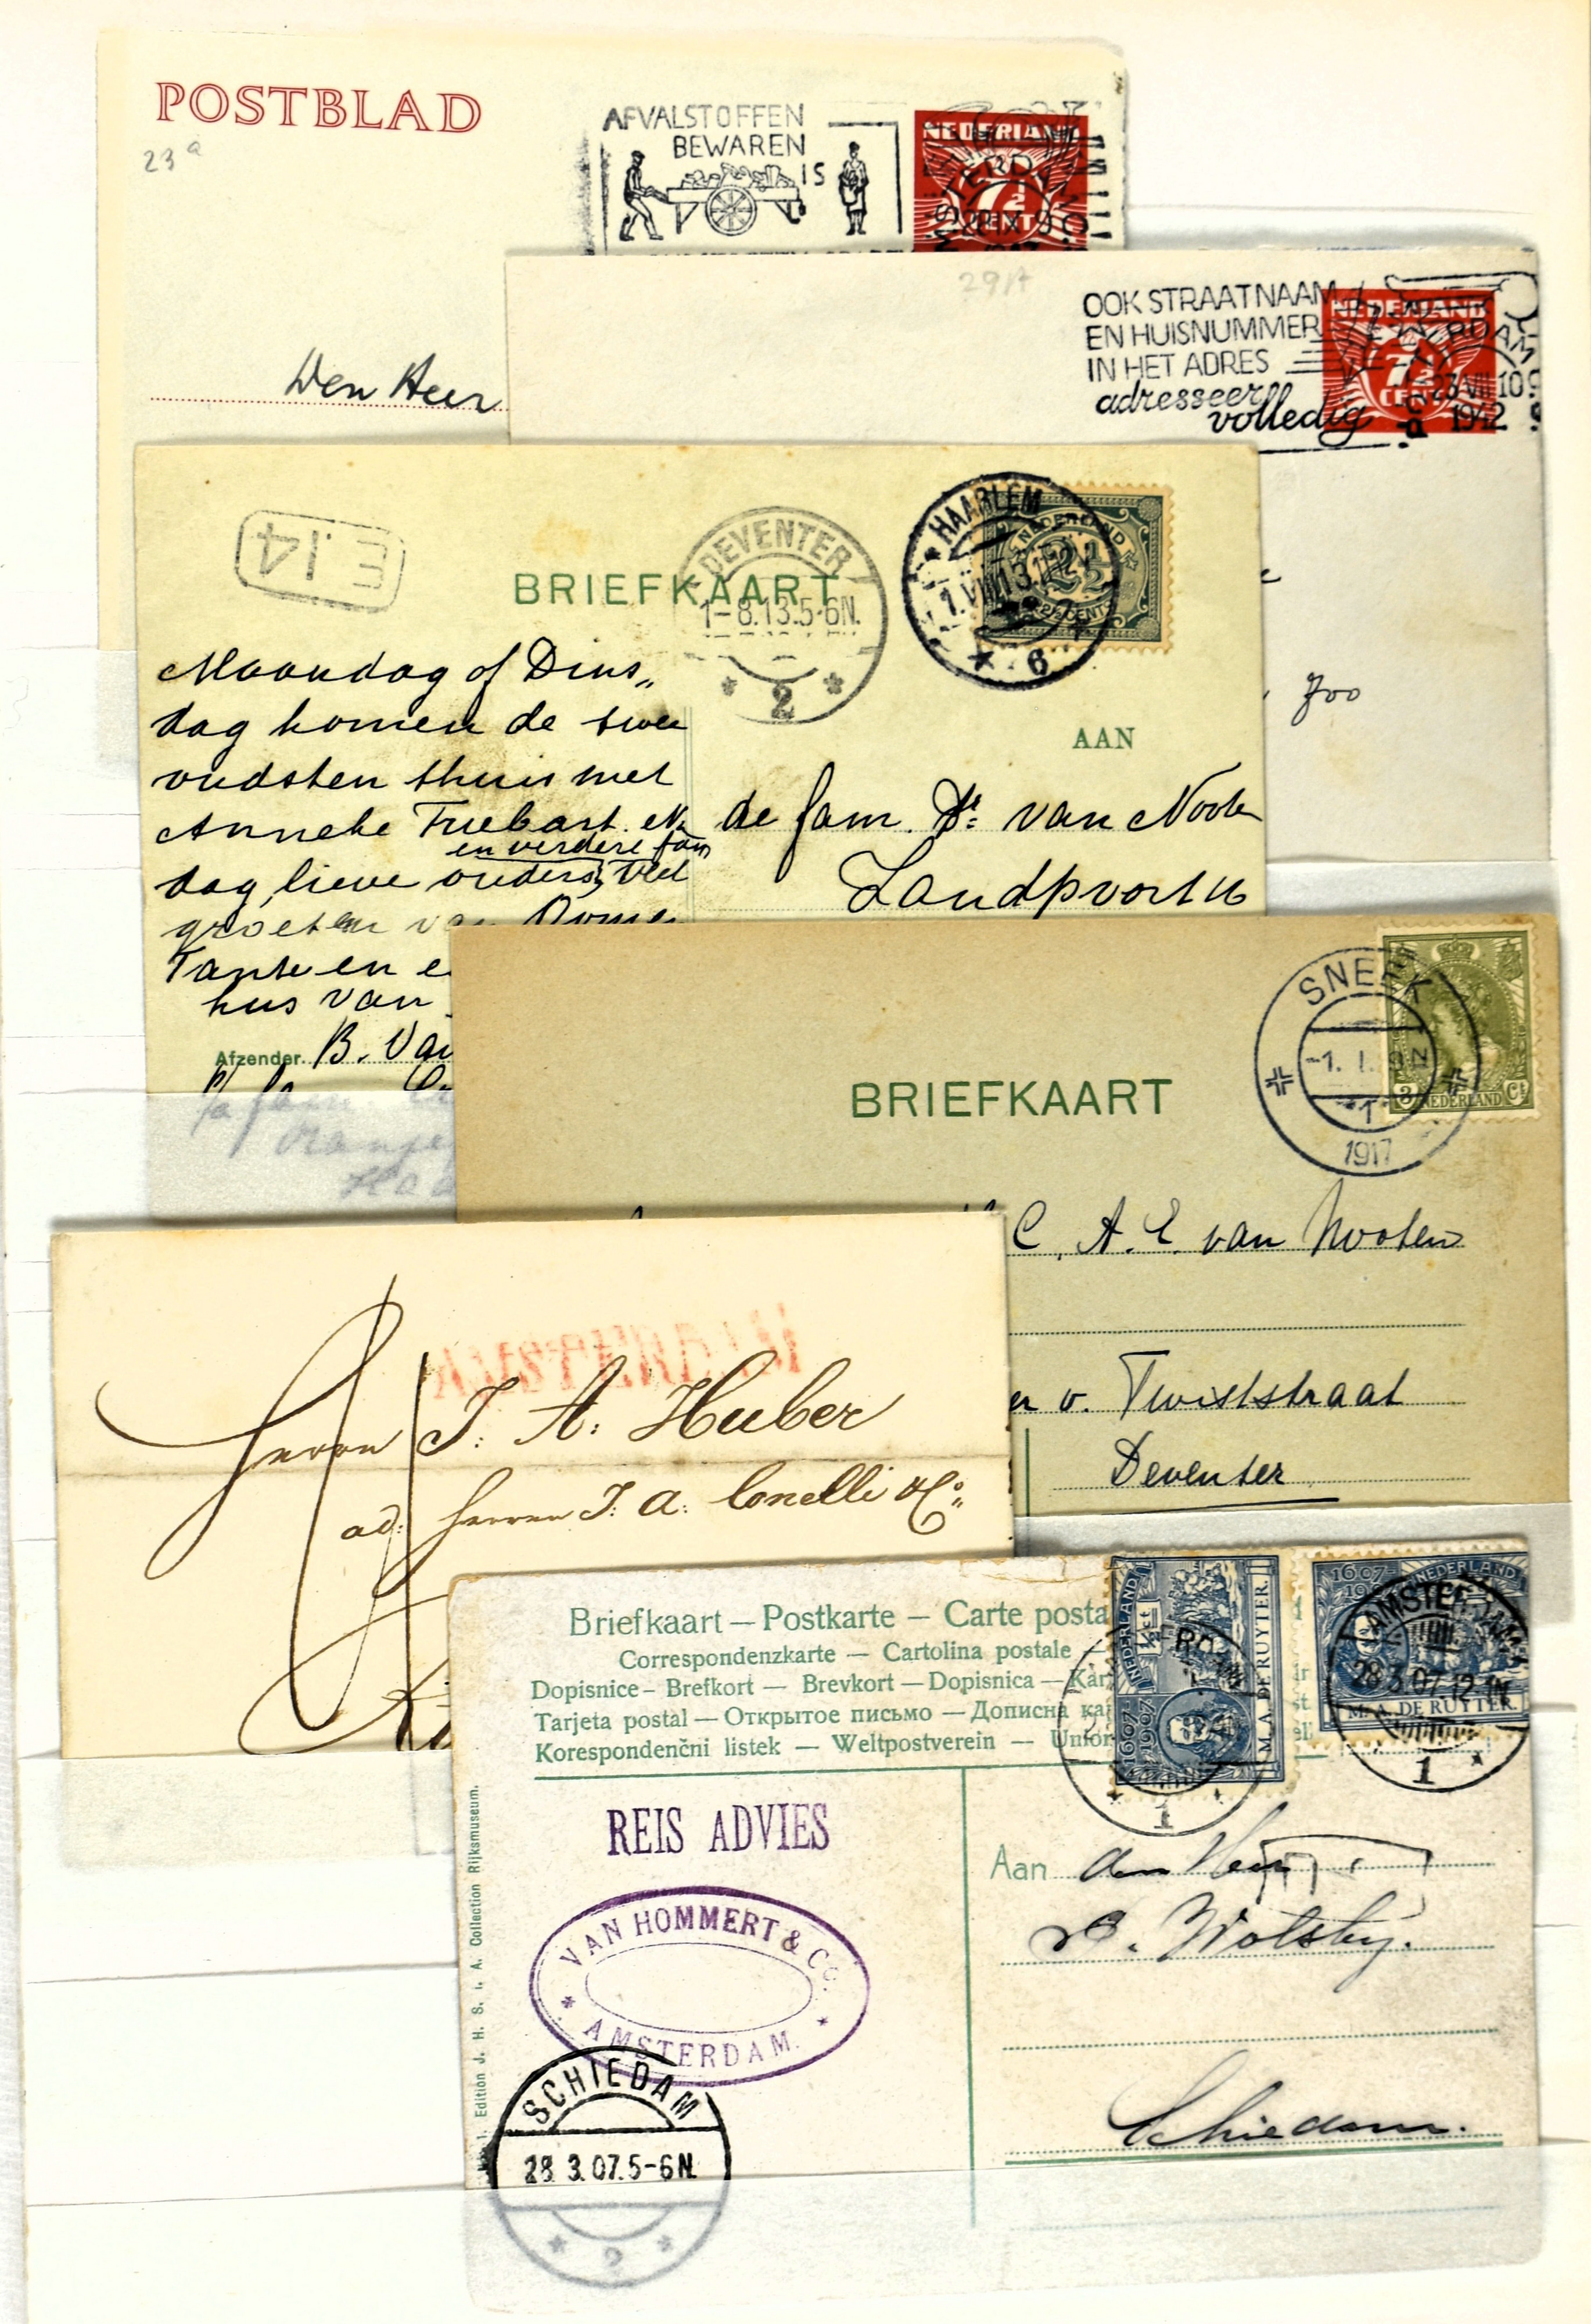 POSTBLAD
23a
AFVALSTOFFEN
BEWAREN
IS
NEDERLAND
7½
CENT
Den Heer
29A
OOK STRAATNAAM
EN HUISNUMMER
IN HET ADRES
adresseer
volledig
NEDERLAND
7½
CENT
23 VII 10
1942
700
E.14
BRIEFKAART
DEVENTER
1-8.13.5-6N.
2
HAARLEM
6
NEDERLAND
2½
2½ CENT
AAN
Maandag of Dins„
dag komen de twee
oudsten thuis met
Anneke
en verdere fam
dag, lieve ouders, veel
groeten van
Tante en
hus van
Afzender B. Van
de fam. Dr. van Noote
Landpoort
SNEEK
-1. I. 9N
1
1917
3 NEDERLAND Ct
BRIEFKAART
C. A. E. van Nooten
er v. Twiststraat
Deventer
AMSTERDAM
Herrn J. A. Huber
ad. Herren J. A. Conelli & Co.
Briefkaart — Postkarte — Carte posta
Correspondenzkarte — Cartolina postale —
Dopisnice – Brefkort — Brevkort — Dopisnica — Kar
Tarjeta postal — Открытое письмо — Дописна ка
Korespondenčni listek — Weltpostverein — Union
NEDERLAND
½ ct
1607
1907
M. A. DE RUYTER.
1
1607
NEDERLAND
AMSTERDAM
28.3.07.12-1N
M. A. DE RUYTER.
1
REIS ADVIES
VAN HOMMERT & Co.
AMSTERDAM.
SCHIEDAM
28.3.07.5-6N.
2
Edition J. H. S. i. A. Collection Rijksmuseum.
Aan den Heer
Schiedam.